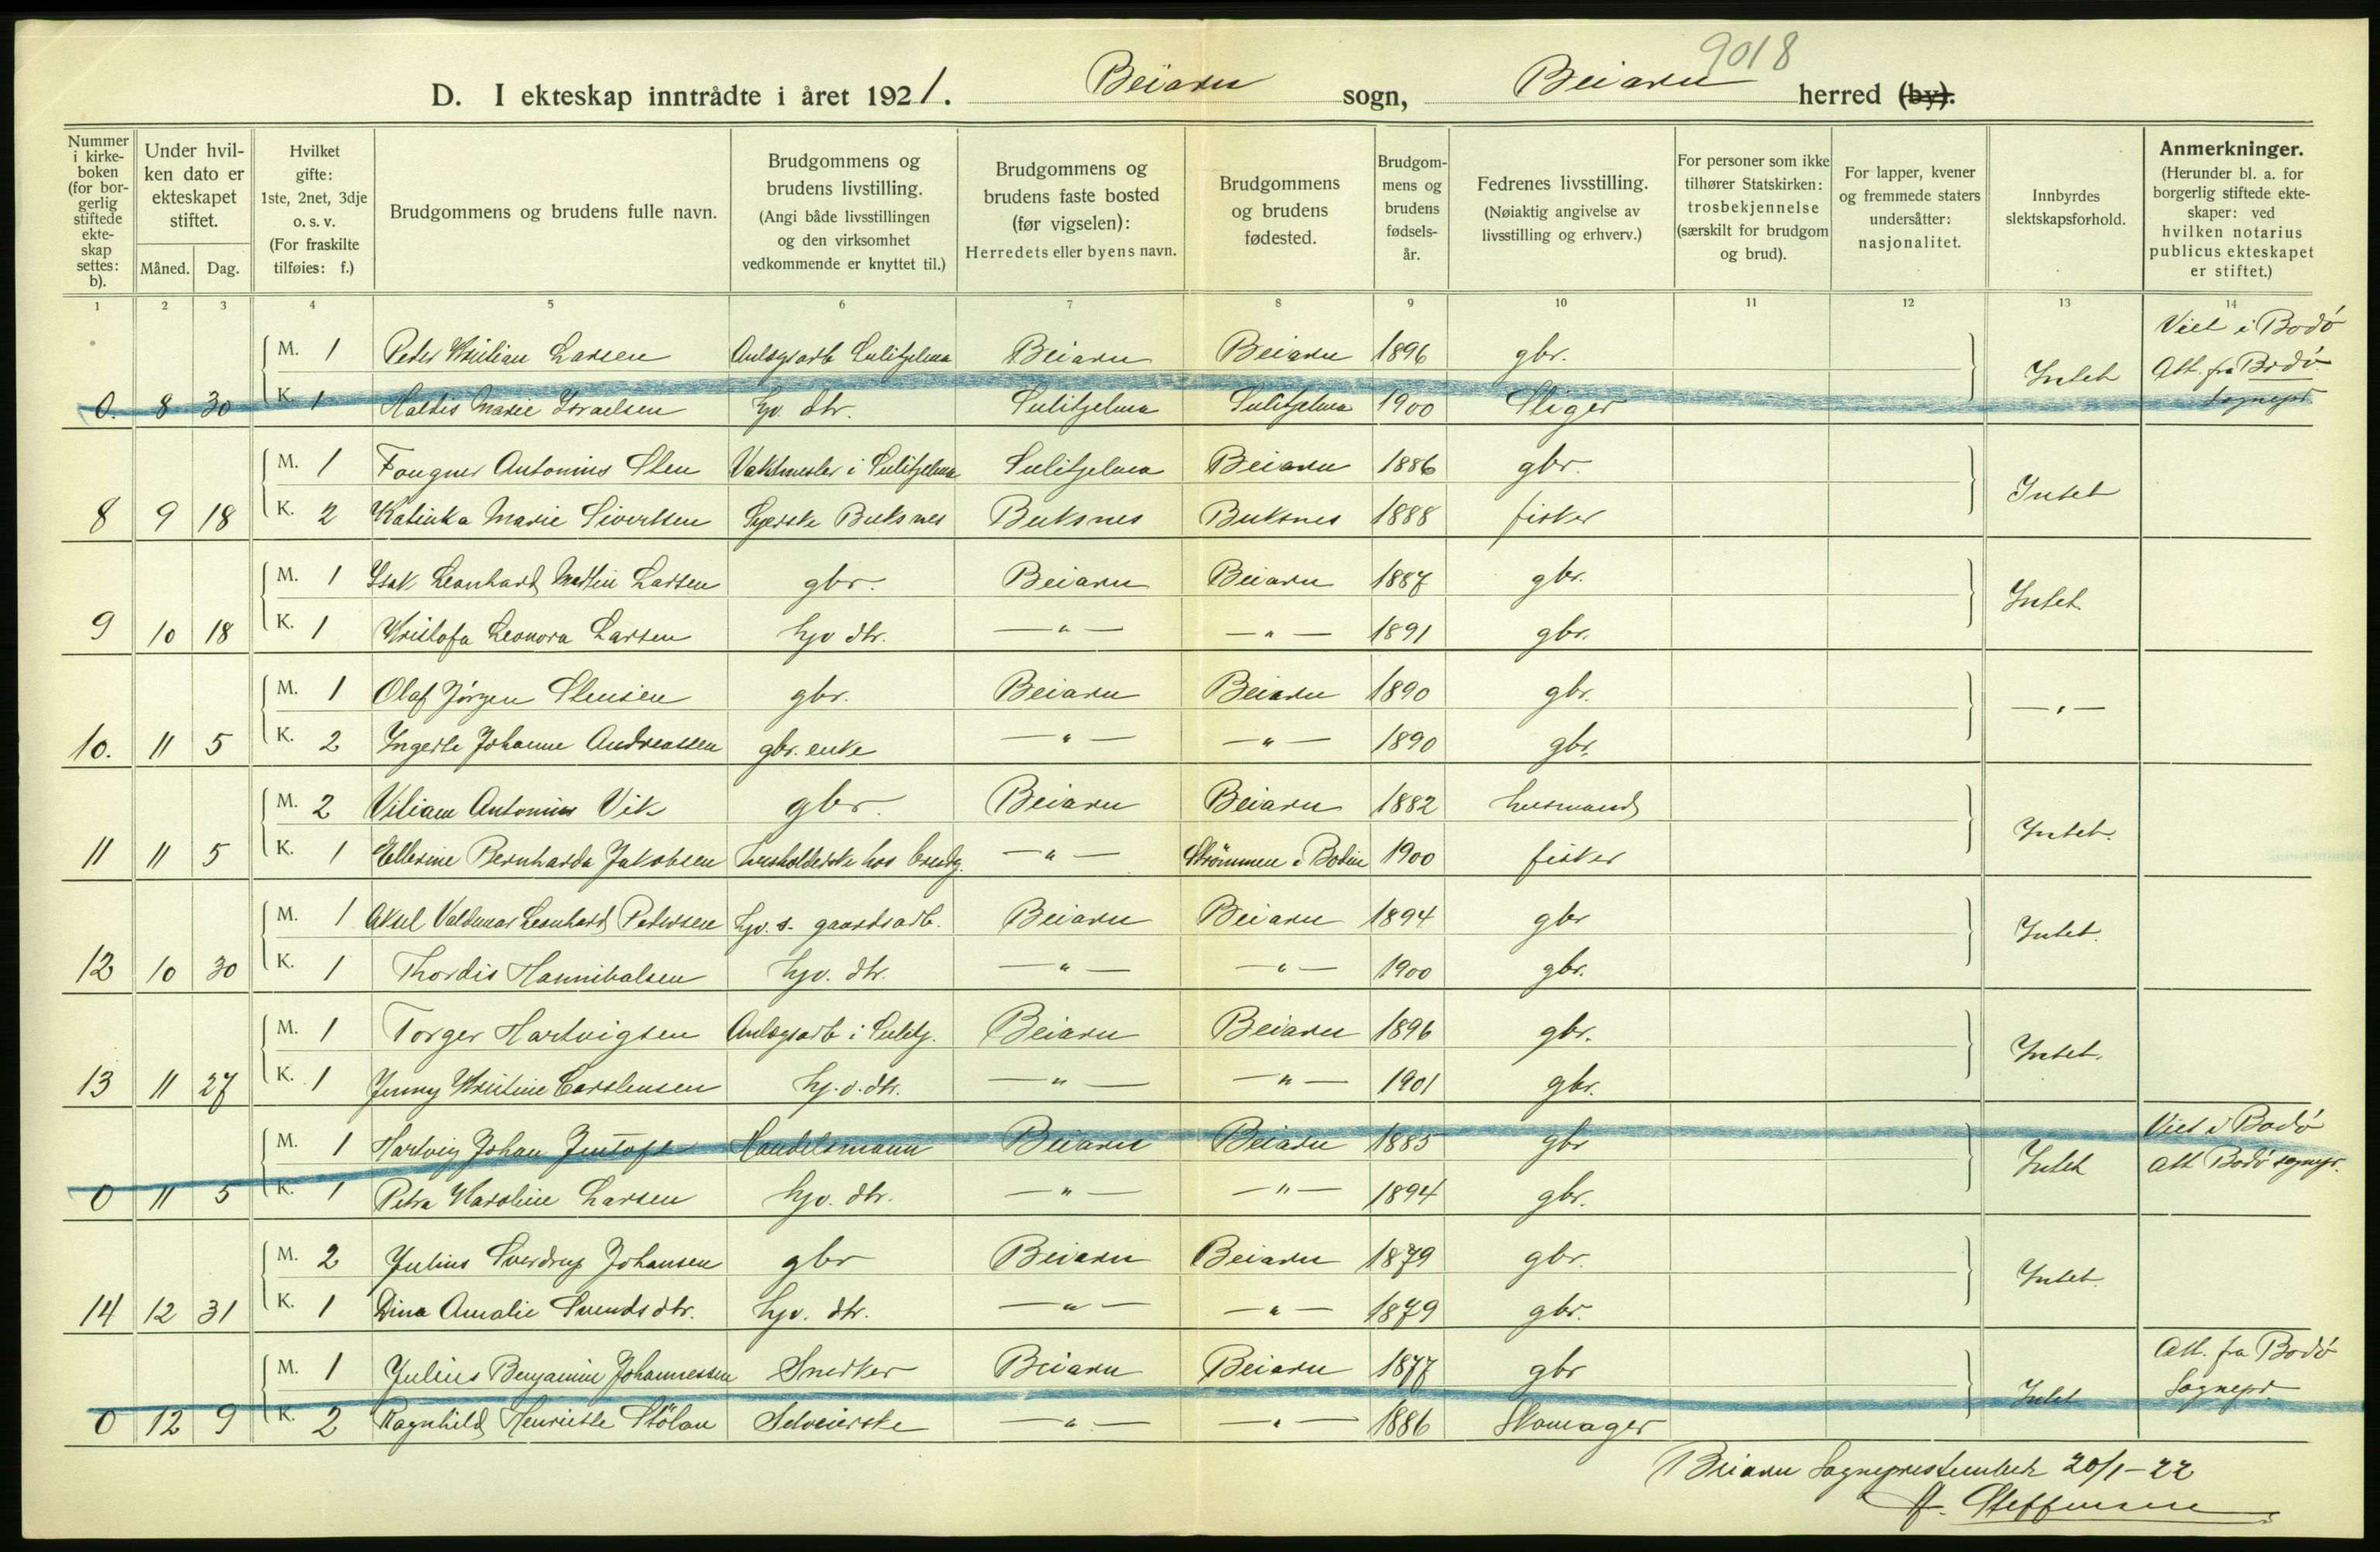 9018
D. I ekteskap inntrådte i året 1921. Beiarn sogn, Beiarn herred (by).
Nummer i kirke-boken (for bor-gerlig stiftede ekte-skap settes: b).
Under hvil-ken dato er ekteskapet stiftet.
Måned. Dag.
Hvilket gifte: 1ste, 2net, 3dje o. s. v. (For fraskilte tilføies: f.)
Brudgommens og brudens fulle navn.
Brudgommens og brudens livstilling. (Angi både livsstillingen og den virksomhet vedkommende er knyttet til.)
Brudgommens og brudens faste bosted (før vigselen): Herredets eller byens navn.
Brudgommens og brudens fødested.
Brudgom-mens og brudens fødsels-år.
Fedrenes livsstilling. (Nøiaktig angivelse av livsstilling og erhverv.)
For personer som ikke tilhører Statskirken: trosbekjennelse (særskilt for brudgom og brud).
For lapper, kvener og fremmede staters undersåtter: nasjonalitet.
Innbyrdes slektskapsforhold.
Anmerkninger. (Herunder bl. a. for borgerlig stiftede ekte-skaper: ved hvilken notarius publicus ekteskapet er stiftet.)
1 2 3 4 5 6 7 8 9 10 11 12 13 14
M. 1 Peder Kristian Larsen Anlegsarb Sulitjelma Beiarn Beiarn 1896 gbr. Viet i Bodö
0. 8 30 K. 1 Haldis Marie Israelsen hjv. dtr. Sulitjelma Sulitjelma 1900 Stiger Intet Att. fra Bodö Sognepr.
M. 1 Fougner Antonius Sten Vaktmester i Sulitjelma Sulitjelma Beiarn 1886 gbr.
8 9 18 K. 2 Katinka Marie Sivertsen Syerske Buksnes Buksnes Buksnes 1888 fisker Intet
M. 1 Isak Leonhard Martin Larsen gbr. Beiarn Beiarn 1887 gbr.
9 10 18 K. 1 Kristofa Leonora Larsen hjv dtr. — " — — " — 1891 gbr. Intet
M. 1 Olaf Jörgen Stensen gbr. Beiarn Beiarn 1890 gbr.
10. 11 5 K. 2 Ingerte Johanne Andreassen gbr. enke — " — — " — 1890 gbr. — " —
M. 2 Viliam Antonius Vik gbr. Beiarn Beiarn 1882 husmand
11 11 5 K. 1 Ellerine Bernharda Jakobsen husholderske hos brudg. — " — Strömmen i Bodin 1900 fisker Intet.
M. 1 Aksel Valdemar Leonhard Pedersen hjv. s. gaardsarb. Beiarn Beiarn 1894 gbr
12 10 30 K. 1 Thordis Hannibalsen hjv. dtr. — " — — " — 1900 gbr. Intet.
M. 1 Torger Hartvigsen Anlegsarb i Sulitj. Beiarn Beiarn 1896 gbr.
13 11 27 K. 1 Jenny Kristine Carstensen hj. v. dtr. — " — — " — 1901 gbr. Intet.
M. 1 Hartvig Johan Jentoft Handelsmann Beiarn Beiarn 1885 gbr Viet i Bodö
0 11 5 K. 1 Petra Karoline Larsen hjv. dtr. — " — — " — 1894 gbr. Intet att Bodö sognepr.
M. 2 Julius Sverdrup Johansen gbr Beiarn Beiarn 1879 gbr.
14 12 31 K. 1 Dina Amalie Svendsdtr. hjv. dtr. — " — — " — 1879 gbr. Intet.
M. 1 Julius Benjamin Johannessen Snedker Beiarn Beiarn 1877 gbr Att. fra Bodö
0 12 9 K. 2 Ragnhild Henriette Stölan Selveierske — " — — " — 1886 Skomager Intet Sognepr.
Beiarn Sogneprestembede 20/1-22
Steffensen